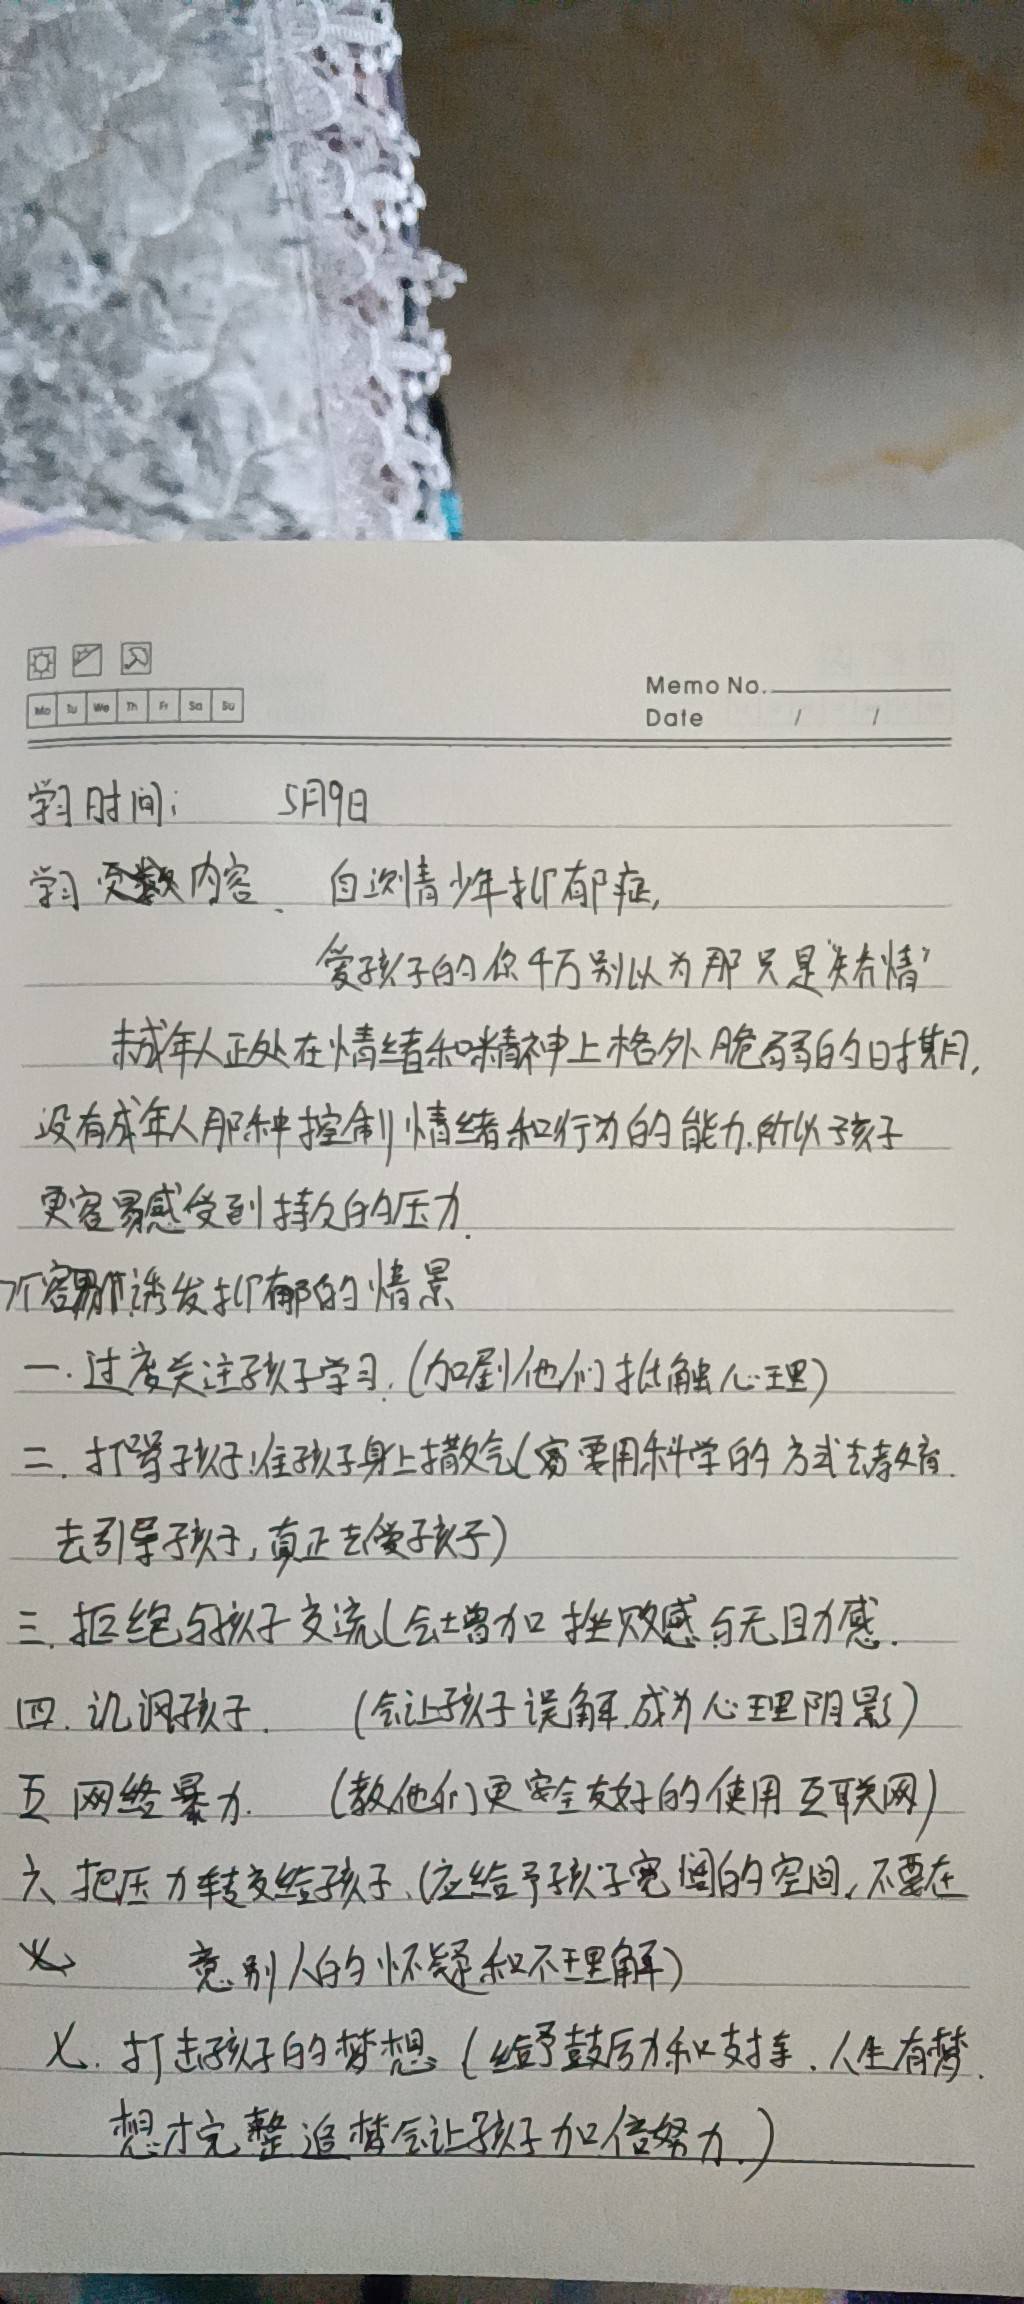 Memo No.
Mo Tu We Th Fr Sa Su
Date / /
学习时间: 5月9日
学习 内容、 自测情少年抑郁症,
爱孩子的你千万别以为那只是"矫情"
未成年人正处在情绪和精神上格外脆弱的时期,
没有成年人那种控制情绪和行为的能力.所以孩子
更容易感受到持久的压力.
个容易诱发抑郁的情景
一.过度关注孩子学习.(加剧他们抵触心理)
二.打骂孩子!往孩子身上撒气(需要用科学的方式去教育.
去引导孩子,真正去爱孩子)
三.拒绝与孩子交流(会增加挫败感与无助感.
四.讥讽孩子. (会让孩子误解.成为心理阴影)
五 网络暴力. (教他们更安全友好的使用互联网)
六、把压力转交给孩子、(应给予孩子宽阔的空间,不要在
意别人的怀疑和不理解)
七.打击孩子的梦想(给予鼓励和支持.人生有梦.
想才完整追梦会让孩子加倍努力.)